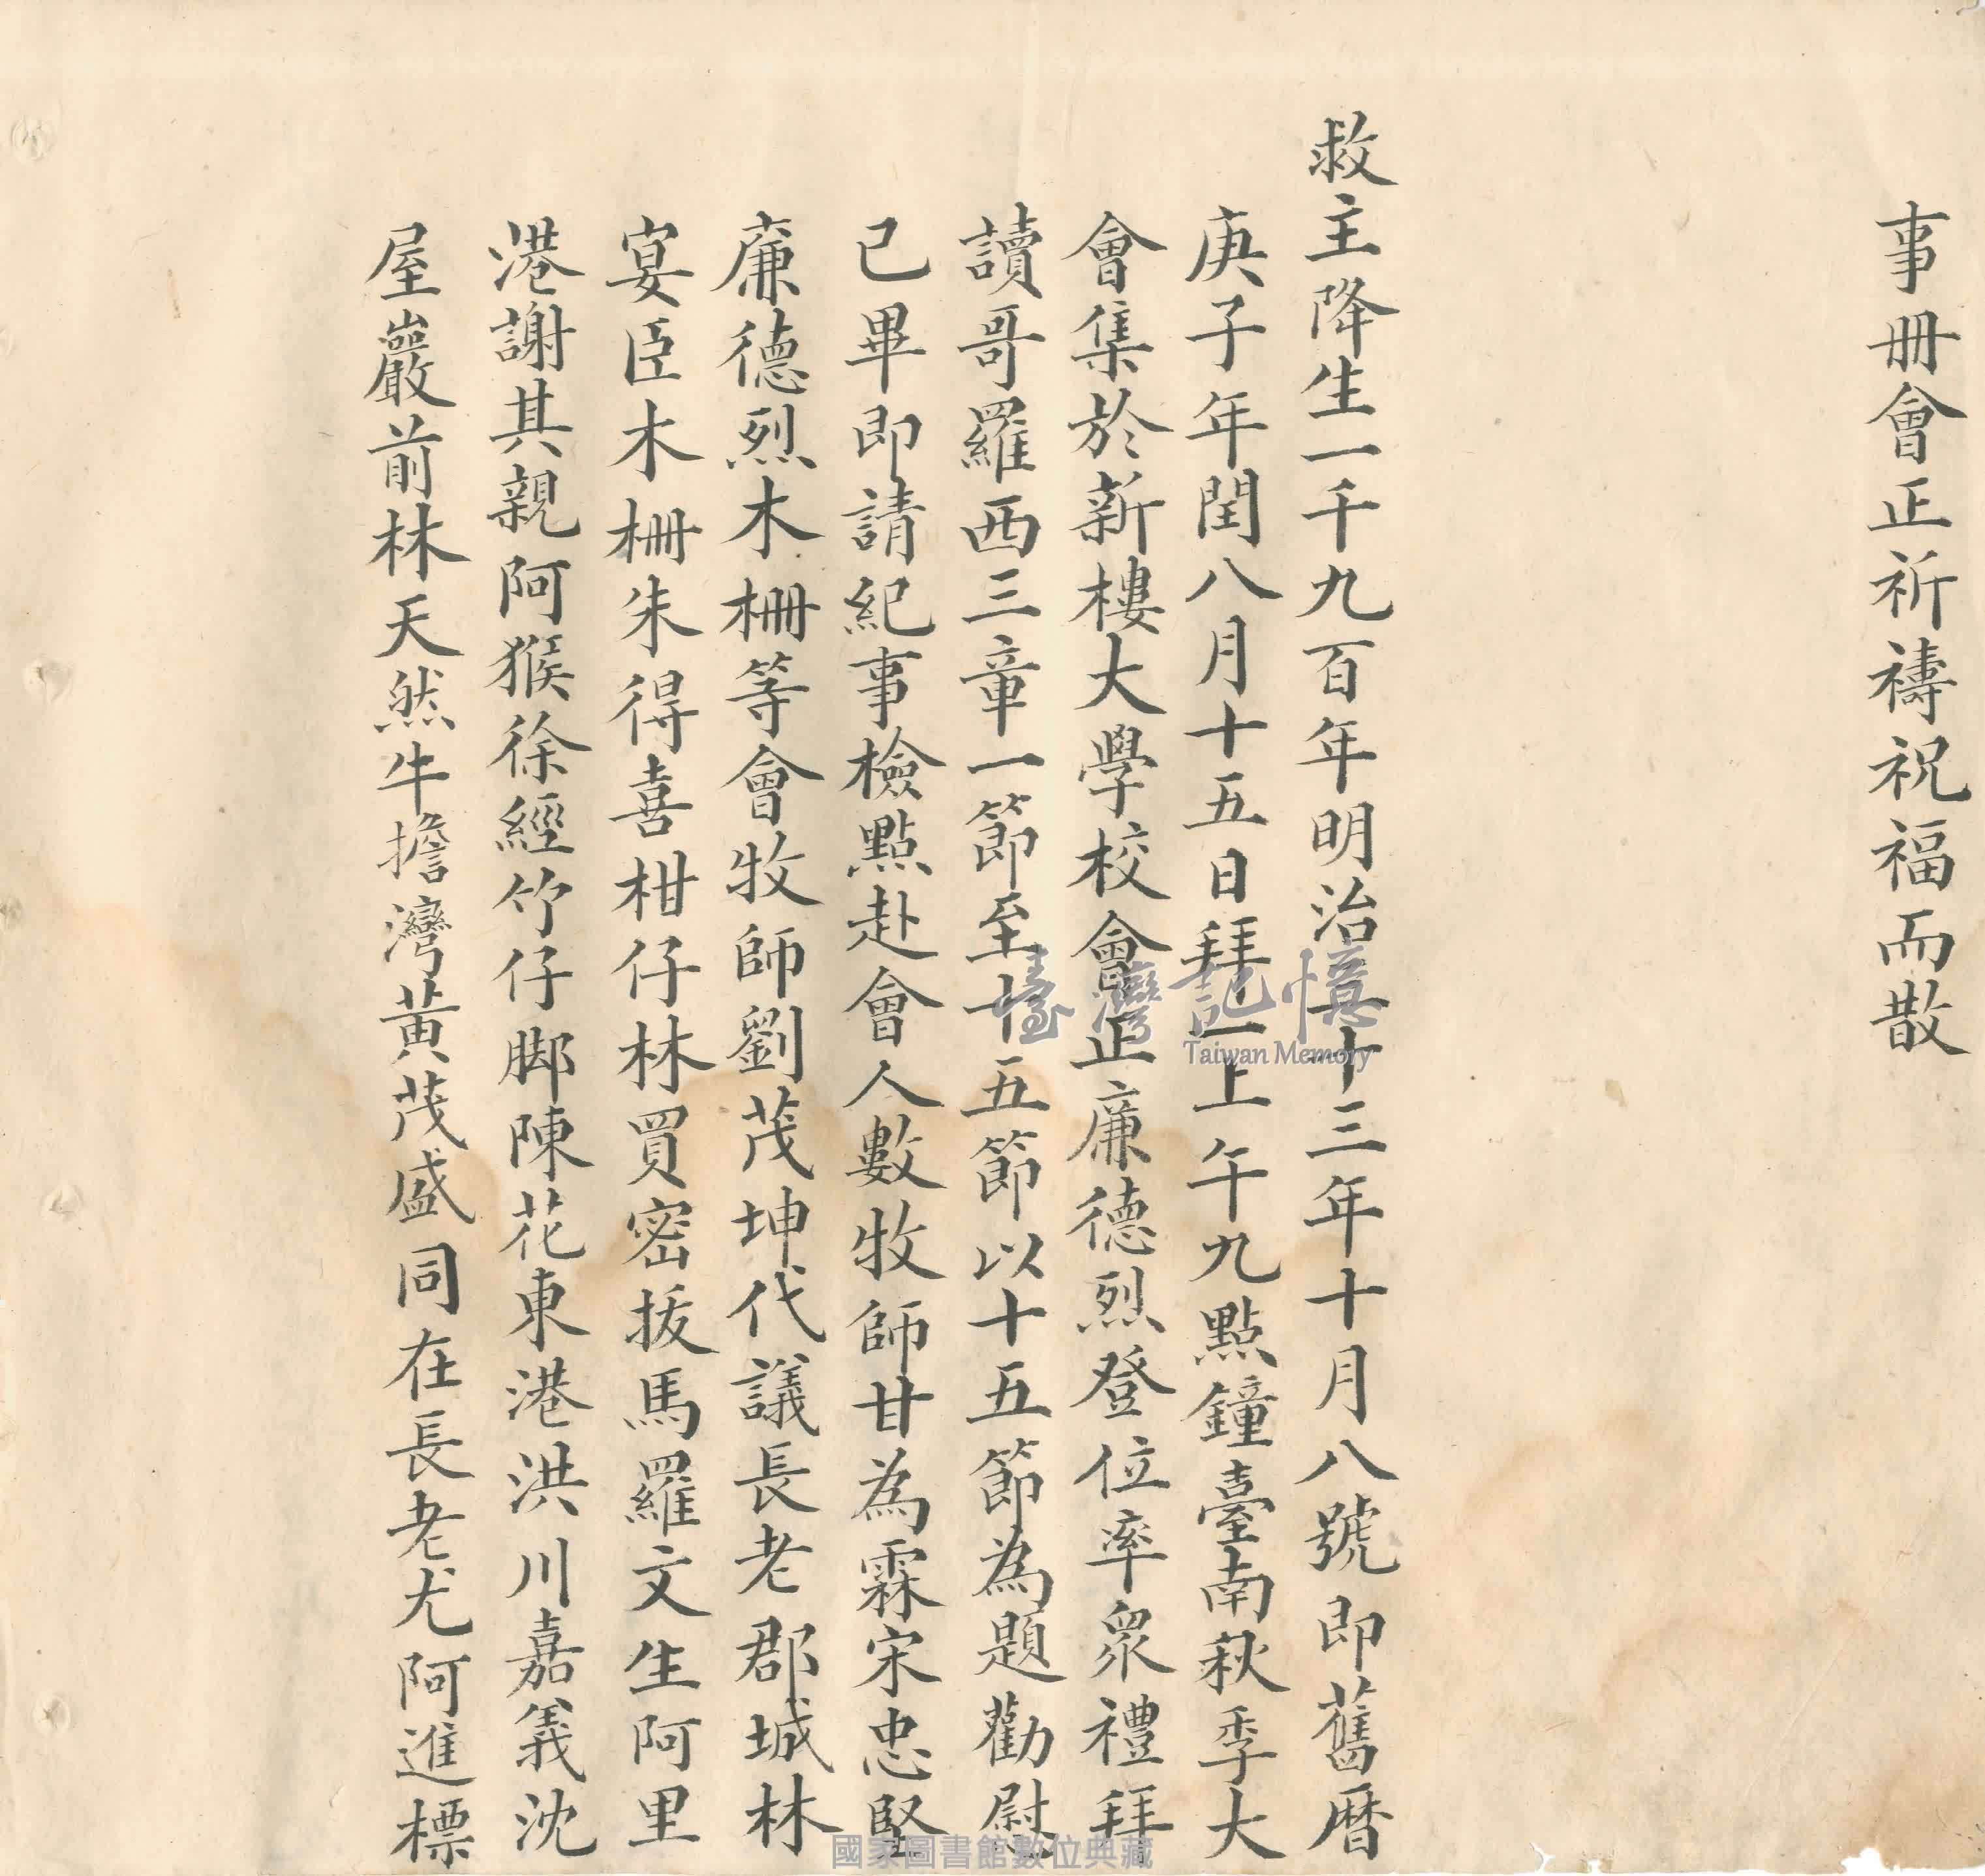 事冊會正祈禱祝福而散
救主降生一千九百年明治三十三年十月八號即舊曆
庚子年閏八月十五日拜一上午九點鐘臺南秋季大
會集於新樓大學校會正廉德烈登位率眾禮拜
讀哥羅西三章一節至十五節以十五節為題勸慰
已畢即請紀事檢點赴會人數牧師甘為霖宋忠堅
廉德烈木柵等會牧師劉茂坤代議長老郡城林
宴臣木柵朱得喜柑仔林買密拔馬羅文生阿里
港謝其親阿猴徐經竹仔腳陳花東港洪川嘉義沈
屋巖前林天然牛擔灣黃茂盛同在長老尤阿進標
臺灣記憶
Taiwan Memory
國家圖書館數位典藏